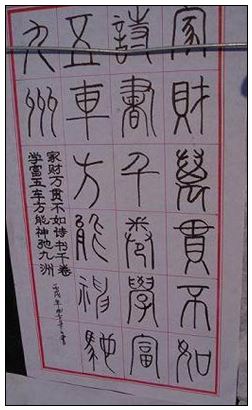 家財萬貫不如
詩書千卷學富
五車方能神馳
九州
家财万贯不如诗书千卷
学富五车方能神弛九洲